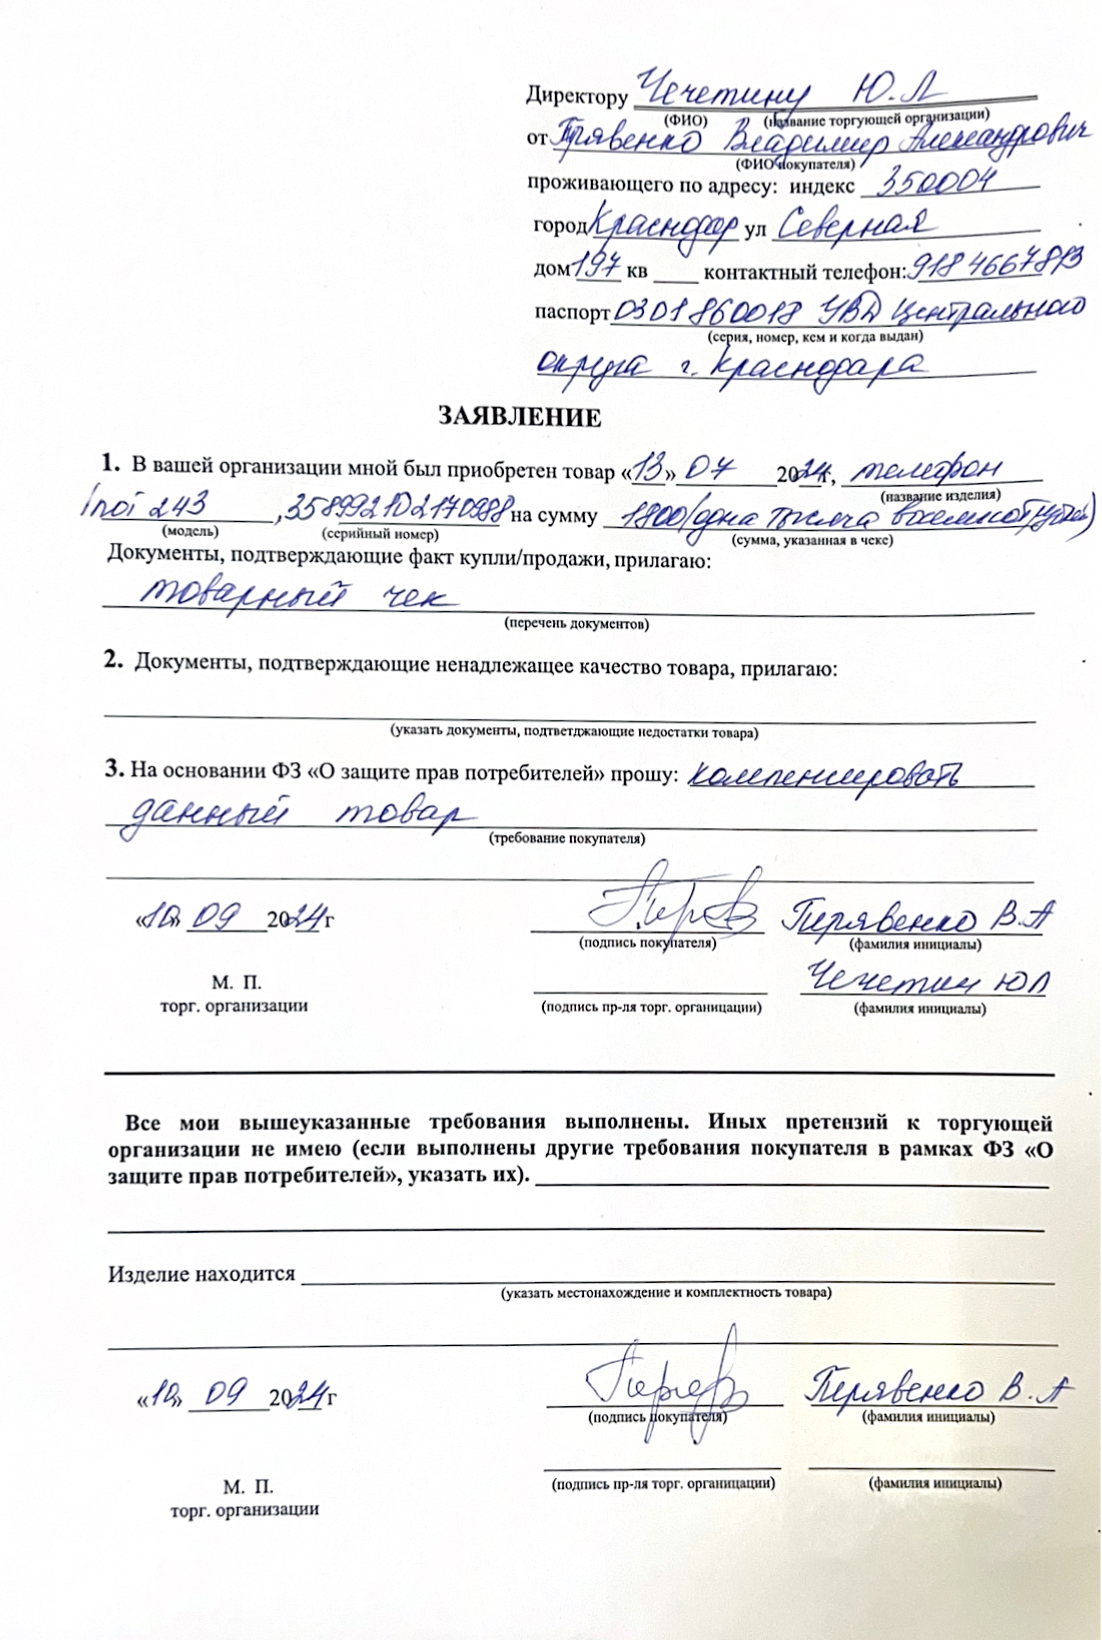 Директору Чечетину Ю.Л
(ФИО) (название торгующей организации)
от Пирявенко Владимир Александрович
(ФИО покупателя)
проживающего по адресу: индекс 350004
город Краснодар ул Северная
дом 197 кв ____ контактный телефон: 918 4667813
паспорт 0301860018 УВД Центрального
(серия, номер, кем и когда выдан)
округа г. Краснодара
ЗАЯВЛЕНИЕ
1. В вашей организации мной был приобретен товар «13» 07 2024г, телефон
(название изделия)
243, 358992102170988 на сумму 1800 (одна тысяча восемьсот рублей)
(модель) (серийный номер) (сумма, указанная в чеке)
Документы, подтверждающие факт купли/продажи, прилагаю:
товарный чек
(перечень документов)
2. Документы, подтверждающие ненадлежащее качество товара, прилагаю:
(указать документы, подтветджающие недостатки товара)
3. На основании ФЗ «О защите прав потребителей» прошу: компенсировать
данный товар
(требование покупателя)
«10» 09 2024г Пирявенко В.А
(подпись покупателя) (фамилия инициалы)
Чечетин ЮЛ
М. П.
торг. организации (подпись пр-ля торг. органицации) (фамилия инициалы)
Все мои вышеуказанные требования выполнены. Иных претензий к торгующей
организации не имею (если выполнены другие требования покупателя в рамках ФЗ «О
защите прав потребителей», указать их).
Изделие находится
(указать местонахождение и комплектность товара)
«10» 09 2024г Пирявенко В.А
(подпись покупателя) (фамилия инициалы)
М. П. (подпись пр-ля торг. органицации) (фамилия инициалы)
торг. организации